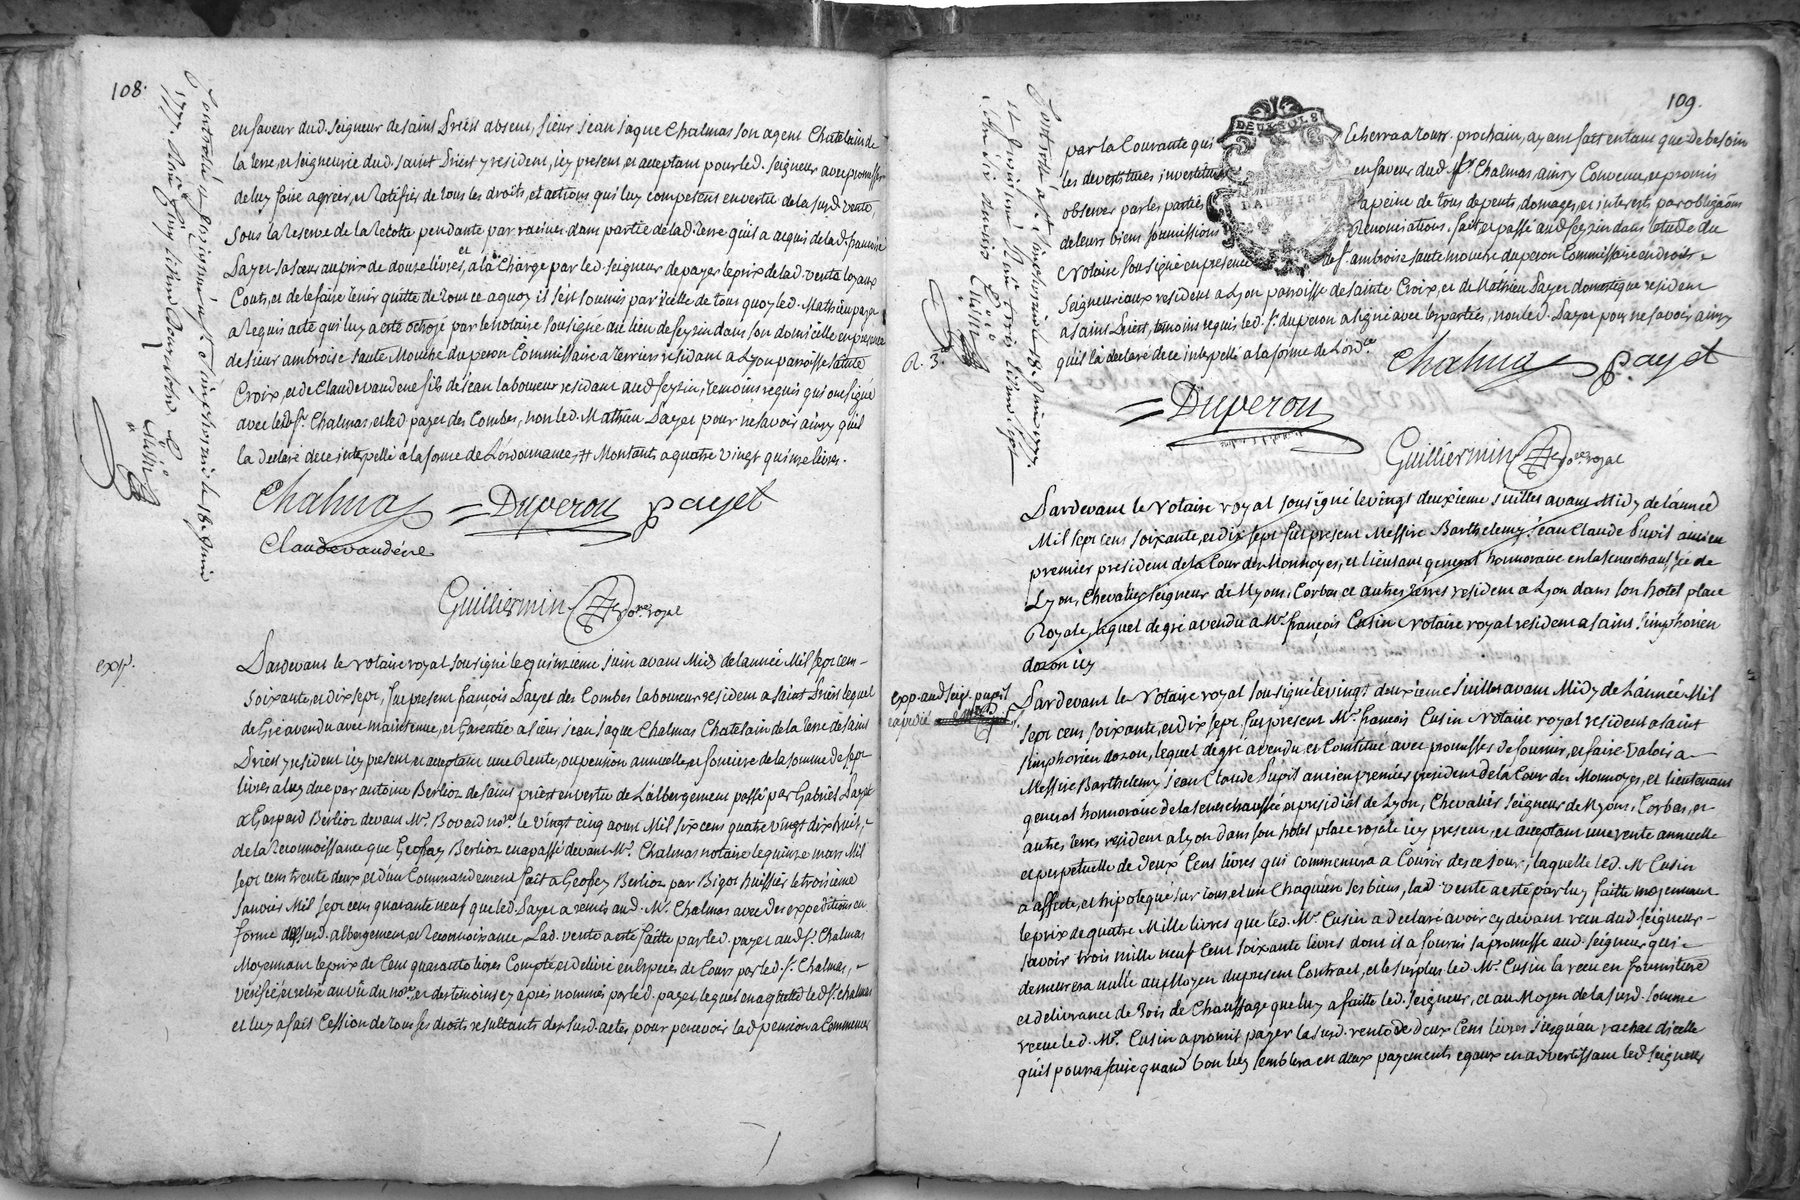 108.
en faveur dud. seigneur de saint Priest absent, sieur jean jaque Chalmas son agent Chatelain de
la terre, et seigneurie dud. saint Priest y resident, icy present, et acceptant pour led. seigneur avec promesse
de luy faire agreer, et Ratifier de tous les droits, et actions qui luy competent en vertu de la susd. vente,
sous la Reserve de la Recolte pendante par racines dans partie de lad. terre qu'il a acquis de lad. françoise
Payet sa soeur au prix de douse livres, et a la Charge par led. seigneur de payer le prix de lad. vente loyaux
Couts, et de le faire tenir quitte de tout ce a quoy il s'est soumis par jcelle de tous quoy led. Mathieu payet
a Requis acte qui luy a esté octrojé par le notaire sousigné au lieu de feyzin dans son domicille en presence
de sieur ambroise saute Mouche duperon Commissaire a terriers residant a Lyon parroisse sainte
Croix, et de Claude vaudene fils de jean laboureur residant aud. feyzin, temoins requis qui ont signé
avec led. sr. Chalmas, et led. payet des Combes, non led. Mathieu Payet pour ne savoir ainsy qu'il
la declaré de ce interpellé a la forme de L'ordonnance, Montant a quatre vingt quinse livres.
Chalmas = Duperou payet
Claude vaudéne
Guilliermin no.re royal
exp.
Pardevant le Notaire royal sousigné le quinzieme juin avant Midy de lannée Mil sept cent
soixante, et dix sept, fut present françois Payet des Combes laboureur resident a saint Priest lequel
de Gré a vendu avec maintenue, et Garentie a sieur jean jaque Chalmas Chatelain de la terre de saint
Priest y resident icy present et acceptant une Rente, ou pension annuelle, et fonciere de la somme de sept
livres a luy due par antoine Berlioz de saint priest en vertu de L'albergement passé par Gabriel Payet
a Gaspard Berlioz devant Mr. Bovard nore. le vingt cinq aout Mil six cent quatre vingt dix huit,
de la Reconnoissance que Geofray Berlioz en a passé devant Mr. Chalmas notaire le quinze mars Mil
sept cent trente deux, et d'un Commandement fait a Geofrey Berlioz par Bigot huissier le troisieme
janvier Mil sept cent quarante neuf que led. Payet a remis aud. Mr. Chalmas avec des expeditions en
forme desd. albergement, et Reconnoissance, Lad. vente a esté faitte par led. payet aud. sr. Chalmas
Moyennant le prix de Cent quarante livres Compté, et delivré en Especes de Cours par led. sr. Chalmas,
verifié, et retiré au vû du nore., et des temoins cy apres nommés par led. payet, lequel en a quitté led. sr. chalmas
et luy a fait Cession de tous ses droits resultants des susd. actes pour percevoir lad. pension a Commencer
109.
DEUX SOLS
DAUPHINE
par la Courante qui echerra a tous prochain, ayant fait en tant que de besoin
les devestitures investitures en faveur dud. sr. Chalmas, ainsy Convenu, et promis
observer par les parties a peine de tous depents, domages, et interests par obligations
de leurs biens soumissions Renonciations. fait et passé aud. feyzin dans l'etude du
Notaire sousigné en presence de sr. ambroise saute mouche duperon Commissaire en droits
seigneuriaux resident a Lyon parroisse de sainte Croix, et de Mathieu Payet domestique resident
a saint Priest, temoins requis led. sr. duperon a signé avec les parties, non led. Payet pour ne savoir ainsy
qu'il la declaré de ce interpellé a la forme de L'ordce
Chalmas payet
= Duperou
Guilliermin no.re royal
R. 3.
Pardevant le Notaire royal sousigné le vingt deuxieme juillet avant Midy de lánneé
Mil sept cent soixante, et dix sept fut present Messire Barthelemy jean Claude Pupil ancien
premier president de la Cour des Monnoyes, et lieutenant general honnoraire en la senechaussée de
Lyon, Chevalier seigneur de Myons, Corbas et autres terres resident a Lyon dans son hotel place
Royale, lequel de gré a vendu a Mr. françois Cusin Notaire royal resident a saint simphorien
dozon icy
exp. aud. seigr. pupil
Pardevant le Notaire royal sousigné le vingt deuxieme juillet avant Midy de L'année Mil
sept cent soixante, et dix sept fut present Mr. françois Cusin notaire royal resident a saint
simphorien dozon, lequel de gré a vendu, et Constitue avec promesses de fournir, et faire valoir a
Messire Barthelemy jean Claude Pupil ancien premier president de la Cour des Monnoyes, et lieutenant
general honnoraire de la senechaussée, et presidial de Lyon, Chevalier seigneur de Myons, Corbas, et
autres terres resident a Lyon dans son hotel place royale icy present, et acceptant une rente annuelle
et perpetuelle de deux Cent livres qui commencera a Courir de ce jour, laquelle led. Mr Cusin
a affecté, et hipotequé sur tous, et un Chaqu'un ses biens, lad. vente a esté par luy faitte moyennant
le prix de quatre Mille livres que led. Mr. Cusin a declaré avoir cy devant receu dud. seigneur
savoir trois mille neuf Cent soixante livres dont il a fourni sa promesse aud. seigneur qui
demeurera nulle au Moyen du present Contract, et le surplus led. Mr. Cusin la receu en fourniture
et delivrance de Bois de Chauffage que luy a faitte led. seigneur, et au Moyen de la susd. somme
receue led. Mr. Cusin a promit payer la susd. rente de deux Cent livres jusqu'au rachat dicelle
qu'il pourra faire quand bon luy semblera en deux payements egaux en advertissant led. seigneur